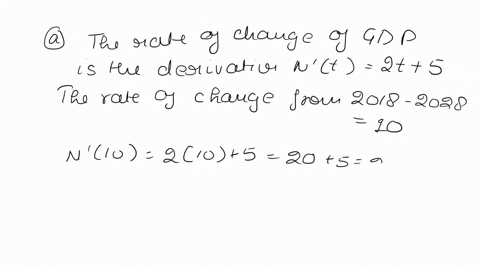 (a) The rate of change of GDP
is the derivative N'(t) = 2t + 5
The rate of change from 2018 - 2028
= 10
N'(10) = 2(10) + 5 = 20 + 5 =